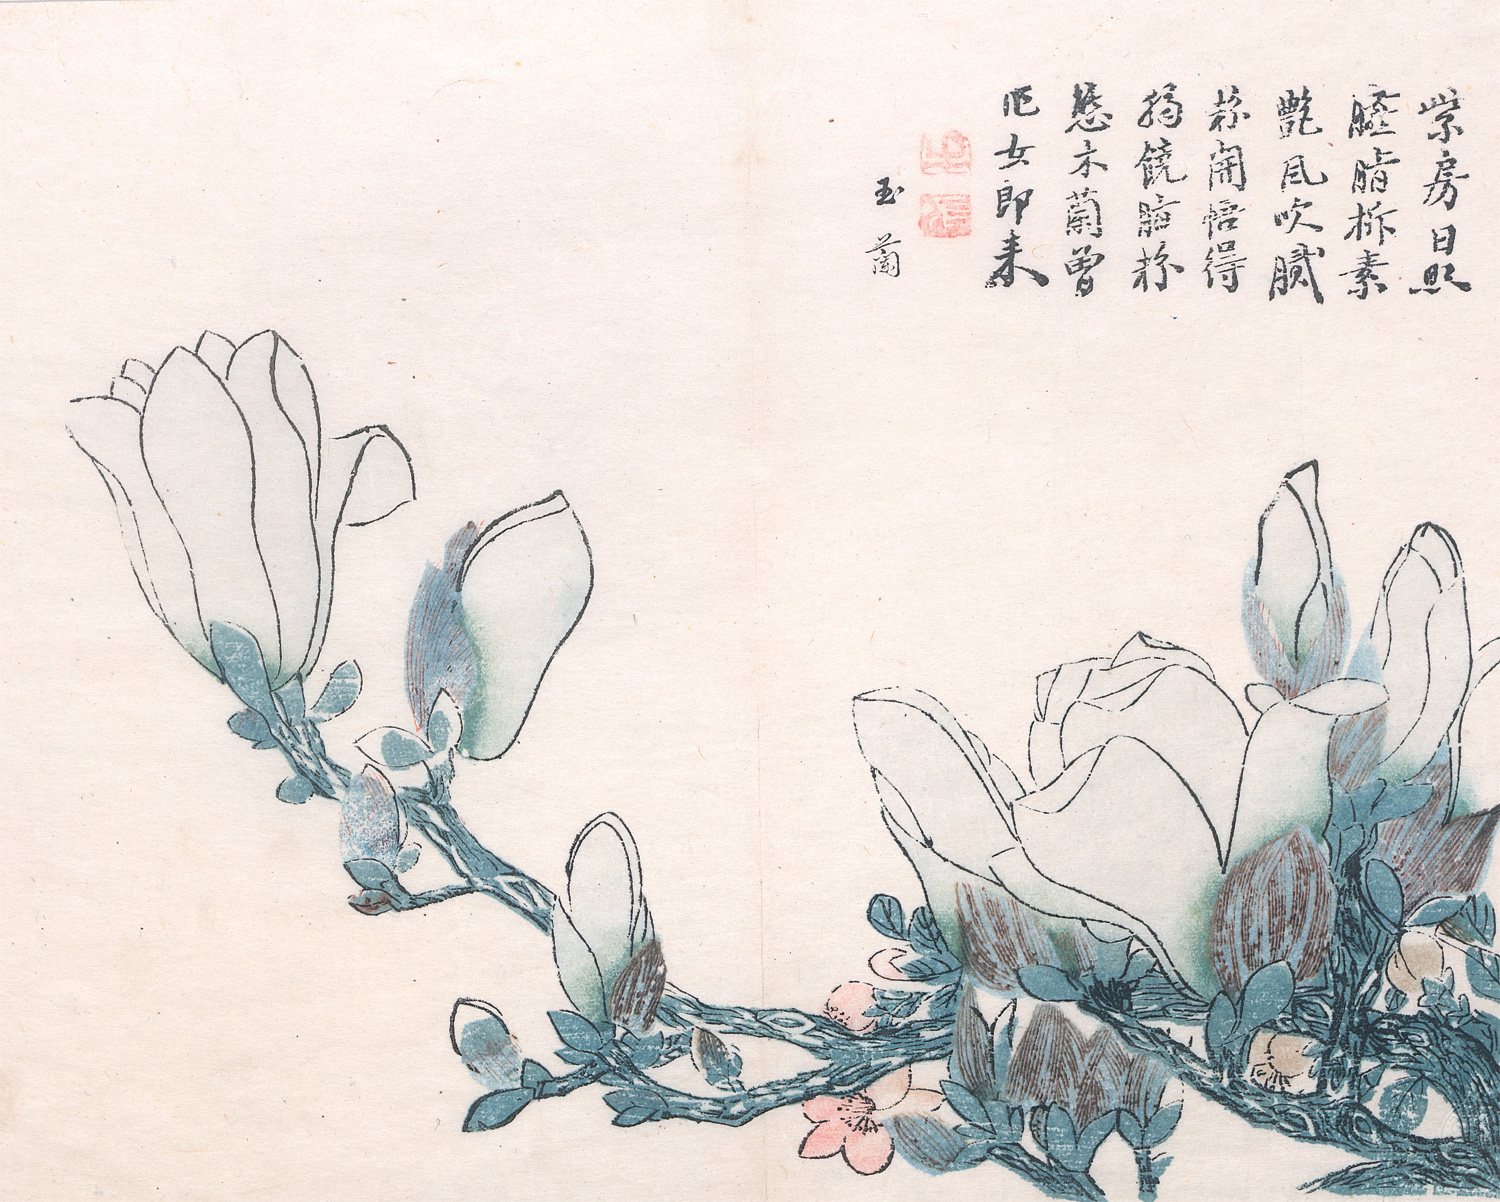 紫房日照
臙脂拆素
艷風吹膩
粉開怪得
獨饒脂粉
態木蘭曾
作女郎来
玉蘭